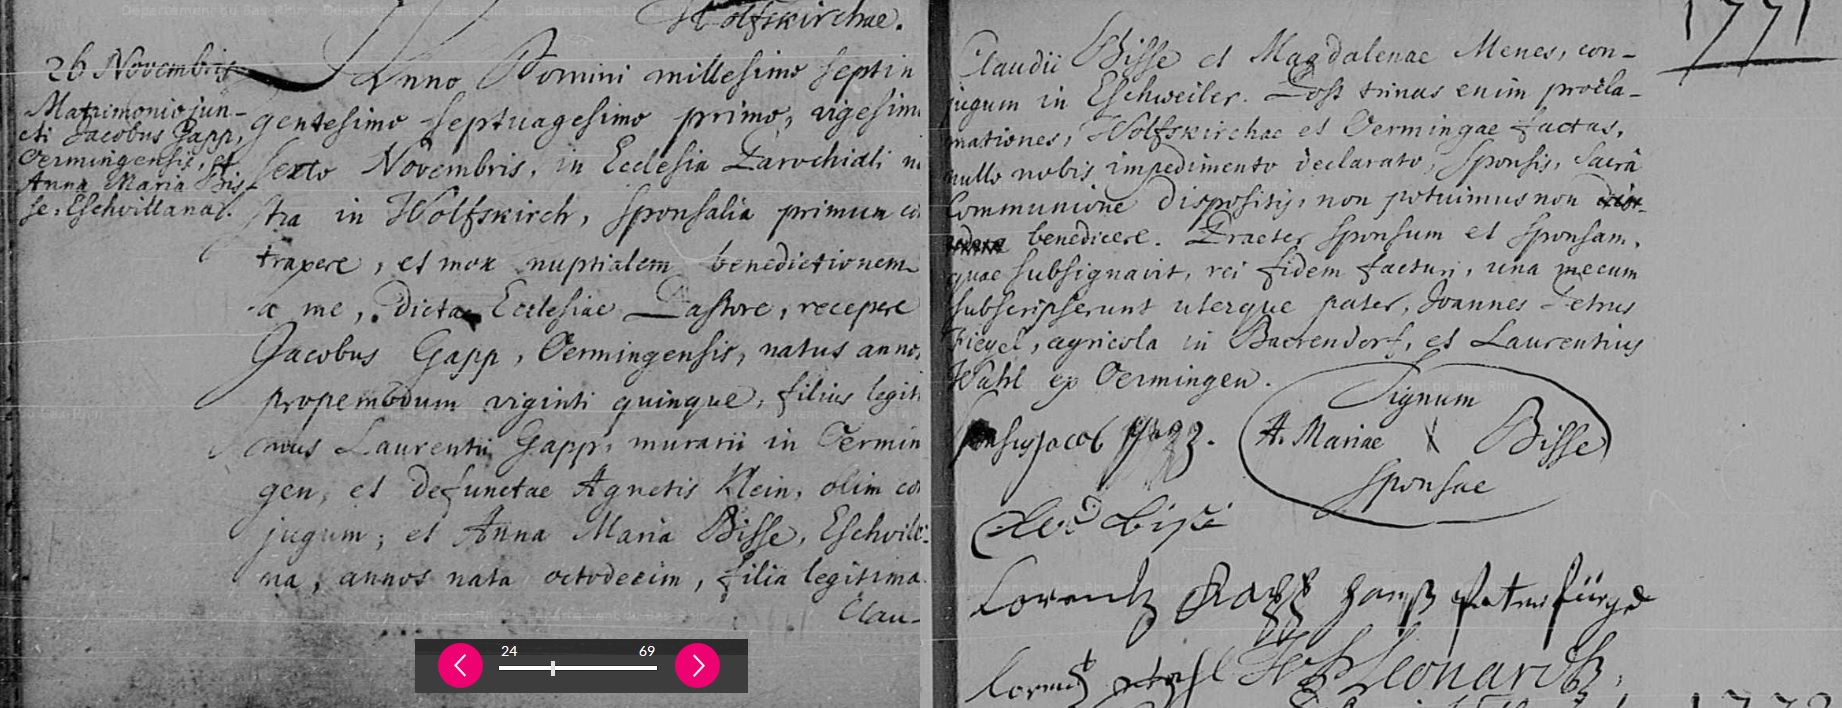 Wolfskirchae.
26 Novembris
Matrimonio jun-
cti Jacobus Gapp,
Oermingensis, et
Anna Maria Bis
se, Eschvillana.
Anno Domini millesimo septin
gentesimo septuagesimo primo, vigesim
sexto Novembris, in Ecclesia Parochiali n
stra in Wolfskirch, sponsalia primum co
traxere, et mox nuptialem benedictionem
a me, dictae Ecclesiae Pastore, recepere
Jacobus Gapp, Oermingensis, natus annos
propemodum viginti quinque, filius legit
mus Laurentii Gapp, murarii in Oermin
gen, et defunctae Agnetis Klein, olim con
jugum; et Anna Maria Bisse, Eschvile
na, annos nata octodecim, filia legitima
Clau-
1771
Claudii Bisse et Magdalenae Menes, con-
jugum in Eschweiler. Post trinas enim procla-
mationes, Wolfskirchae et Oermingae factas,
nullo nobis impedimento declarato, sponsis, sacrâ
Communione dispositis, non potuimus non
benedicere. Praeter sponsum et sponsam,
quae subsignavit, rei fidem facturi, una mecum
subscripserunt uterque pater, Joannes Petrus
Fiegel, agricola in Baerendorf, et Laurentius
Wahl ex Oermingen.
Jacob
Signum
A. Mariae X Bisse
sponsae
Lorentz Gapp
Leonard
1772
24 69